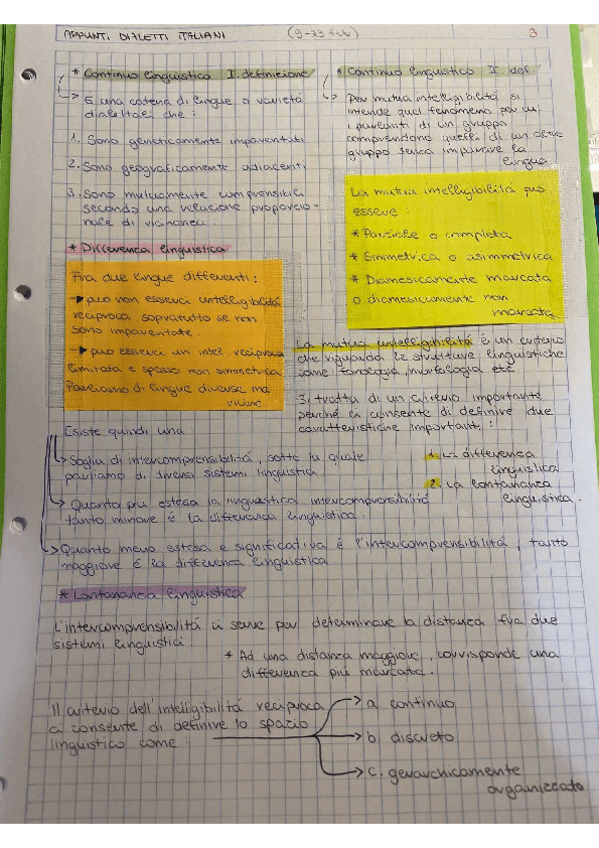 APPUNTI DIALETTI ITALIANI (9-23 feb) 3
* Continuo linguistico I. definizione
→ È una catena di lingue o varietà
dialettali che :
1. Sono geneticamente imparentati
2. Sono geograficamente adiacenti
3. Sono mutuamente comprensibili
secondo una relazione proporzio-
nale di vicinanza
* Continuo linguistico II def.
→ Per mutua intelligibilità si
intende quel fenomeno per cui
i parlanti di un gruppo
comprendono quelli di un altro
gruppo senza imparare la
lingua
La mutua intelligibilità può
essere :
* Parziale o completa
* Simmetrica o asimmetrica
* Diamesicamente marcata
o diamesicamente non
marcata
* Differenza linguistica
Fra due lingue differenti :
→ può non esserci intelligibilità
reciproca sopratutto se non
sono imparentate.
→ può esserci un intel. reciproca
limitata e spesso non simmetrica
Parliamo di lingue diverse ma
vicine
La mutua intelligibilità è un criterio
che riguarda le strutture linguistiche
come fonologia, morfologia etc
Si tratta di un criterio importante
perché ci consente di definire due
caratteristiche importanti :
1. La differenza
linguistica
2. La lontananza
linguistica.
Esiste quindi una
→ Soglia di intercomprensibilità, sotto la quale
parliamo di diversi sistemi linguistici
→ Quanto più estesa la linguistica intercomprensibilità
tanto minore è la differenza linguistica.
→ Quanto meno estesa e significativa è l'intercomprensibilità, tanto
maggiore è la differenza linguistica
* Lontananza linguistica
L'intercomprensibilità ci serve per determinare la distanza fra due
sistemi linguistici
* Ad una distanza maggiore, corrisponde una
differenza più marcata.
Il criterio dell'intelligibilità reciproca
ci consente di definire lo spazio
linguistico come :
→ a continuo
→ b discreto
→ c. gerarchicamente
organizzato